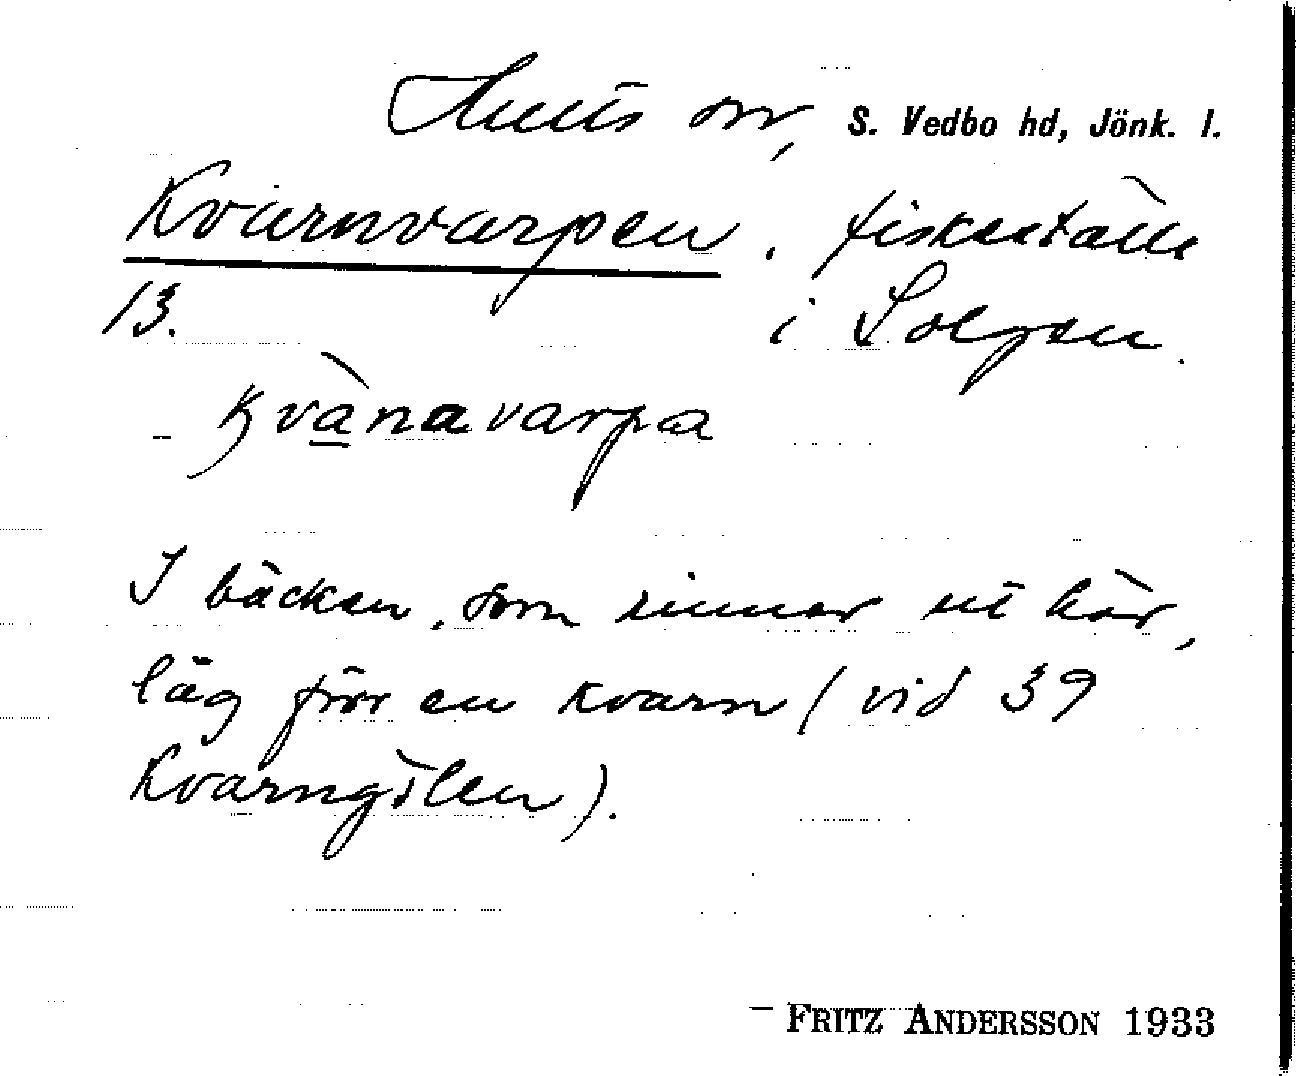 Hults sn, S. Vedbo hd, Jönk. l.
Kvarnvarpen, fiskeställe
13. i Solgen.
kvànavarpa
I bäcken, som rinner ut här,
låg förr en kvarn (vid 39
Kvarngölen).
– FRITZ ANDERSSON 1933